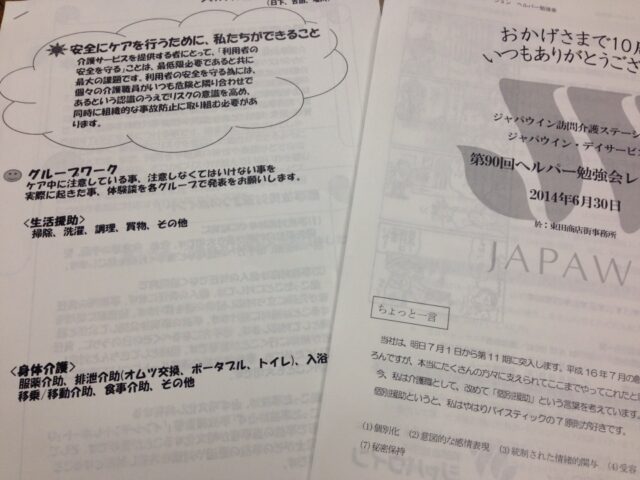 安全にケアを行うために、私たちができること
介護サービスを提供する者にとって、「利用者の
安全を守る」ことは、最低限必要であると共に
最大の課題です。利用者の安全を守る為には、
個々の介護職員がいつも危険と隣り合わせで
あるという認識のうえでリスクの意識を高め、
同時に組織的な事故防止に取り組む必要があ
ります。
グループワーク
ケア中に注意している事、注意しなくてはいけない事を
実際に起きた事、体験談を各グループで発表をお願いします。
<生活援助>
掃除、洗濯、調理、買物、その他
<身体介護>
服薬介助、排泄介助(オムツ交換、ポータブル、トイレ)、入浴
移乗/移動介助、食事介助、その他
ション ヘルパー勉強会
おかげさまで10
いつもありがとうござ
ジャパウイン訪問介護ステーシ
ジャパウイン・デイサービ
第90回ヘルパー勉強会レ
2014年6月30日
於:東田商店街事務所
JAPAW
ちょっと一言
当社は、明日7月1日から第11期に突入します。平成16年7月の創
ろんですが、本当にたくさんの方々に支えられてここまでやってこれたと
今、私は介護職として、改めて「個別援助」という言葉を考えています
個別援助というと、私はやはりバイスティックの7原則が好きです。
(1)個別化 (2)意図的な感情表現 (3)統制された情緒的関与 (4)受容
(7)秘密保持